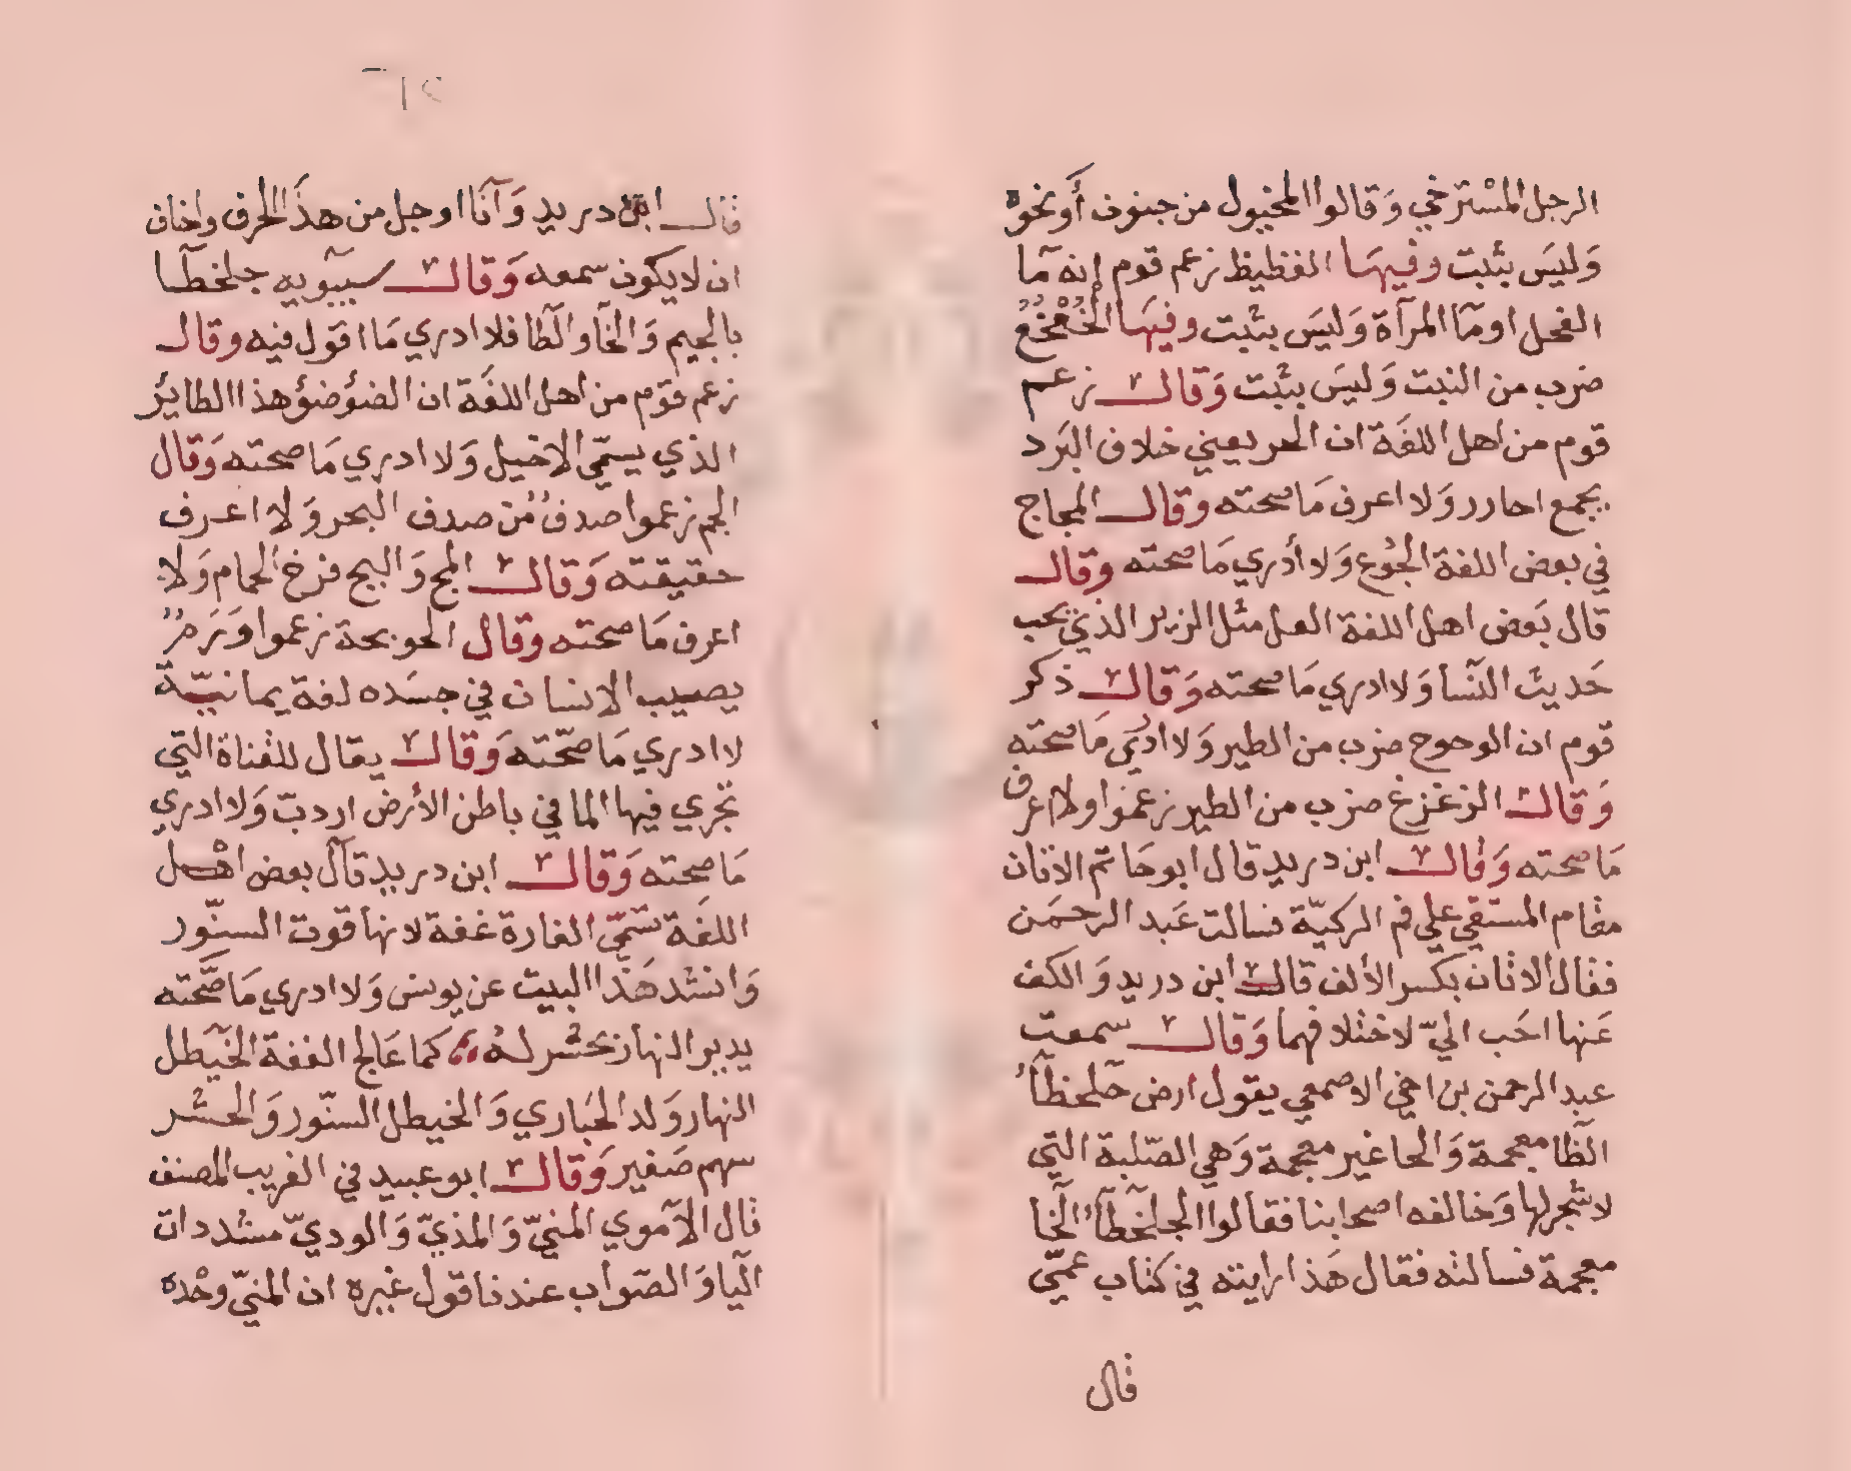 الرجل المسْترخي وَقالوا المخبول من جنون أَو نحوه
وَليسَ بثبت وفيهَا الفظيظ زعم قوم إنه مآ
الفحل اومآ المرآة وَليسَ بثبت وفيهَا الخُعْخُعُ
ضرب من النبت وَليسَ بثبت وَقال زعم
قوم من اهل اللغَة ان الحر يعني خلاف البَرد
يجمع احارر وَلا اعرف مَا صحته وقال المجاج
في بعض اللغة الجُوع وَلا أدري مَا صحته وقال
قال بَعض اهل اللغة العل مثل الزير الذي يحب
حَديث النّسا وَلا ادري مَا صحته وَقال ذكر
قوم ان الوحوح ضرب من الطير وَلا ادري مَا صحته
وَقال الزغزغ ضرب من الطير زعموا ولا اعرف
مَا صحته وَقال ابن دريد قال ابو حَاتم الاتان
مقام المستقي علي فم الركيّة فسالت عَبد الرحمَن
فقال الاتان بكسر الألف قال ابن دريد وَالكف
عَنها احَب اليّ لاختلافهما وَقال سمعت
عبد الرحمن بن اخي الاصمعي يقول ارض حَلحظآءُ
الظآا معجمة وَالحا غير معجمة وَهي الصّلبة التي
لا شجر لها وَخالفه اصحابنا فقالوا الجلخطآءُ الخا
معجمة فسالته فقال هَذا رايته في كتاب عمّي
قال
٦١٢
قال ابن دريد وَآنَا اوجل من هذَا الحرف واخاف
ان لا يكون سمعه وَقال سيبَويه جلخطآا
بالجيم وَالخآ وَالطآا فلا ادري مَا اقول فيه وقال
زعم قوم من اهل اللغَة ان الضؤضؤ هذا الطايرُ
الذي يسمّي الاخيل وَلا ادري مَا صحته وَقال
الجم زعموا صدفُ مُن صدف البحر وَلا اعرف
حقيقته وَقال المج وَالبج فرخ الحمام وَلا
اعرف مَا صحته وقال الحوبجة زعموا وَرَمُ
يصيب الانسان في جسَده لغة يمانيّة
لا ادري مَا صحّته وَقال يقال للقناة التي
تجري فيها الما في باطن الأرض اردبّ وَلا ادري
مَا صحته وَقال ابن دريد قآل بعض اهْل
اللغَة تسمّي الفارة غفة لانها قوت السنّور
وَانشد هَذا البيت عن يونس وَلا ادري مَا صَّحته
يدير النهار بحشر له ؞ كما عَالج الغفة الخَيطل
النهار وَلد الحبَاري وَالخيطل السنّور وَالحشر
سهم صَغير وَقال ابو عبيد في الغريب المصنف
قال الآموي المنيّ وَالمذيّ وَالوديّ مشددات
اليآ وَالصّواب عندنا قول غيره ان المنيّ وحْده